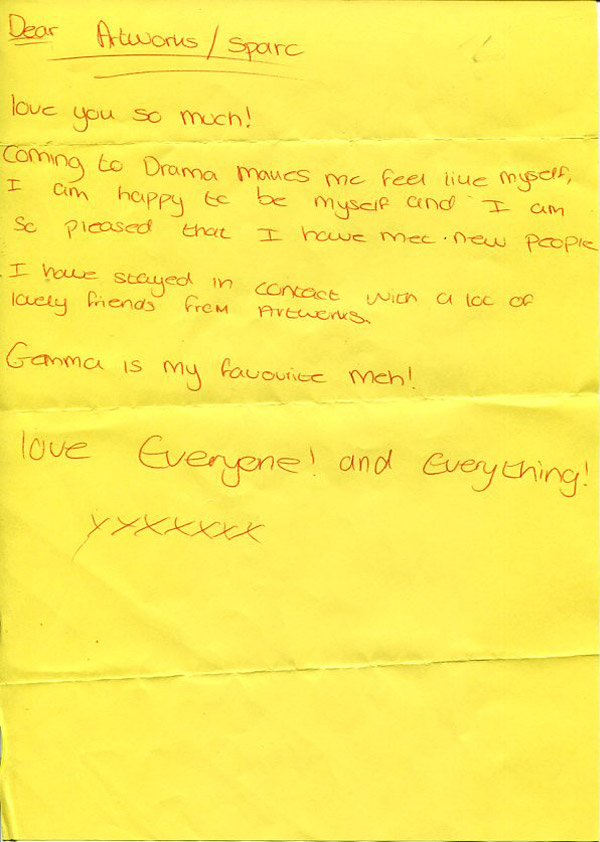 Dear Artworks / Sparc
love you so much!
Coming to Drama makes me feel like myself,
I am happy to be myself and I am
so pleased that I have met new people
I have stayed in contact with a lot of
lovely friends from Artworks.
Gemma is my favourite meh!
love Everyone! and Everything!
xxxxxxx